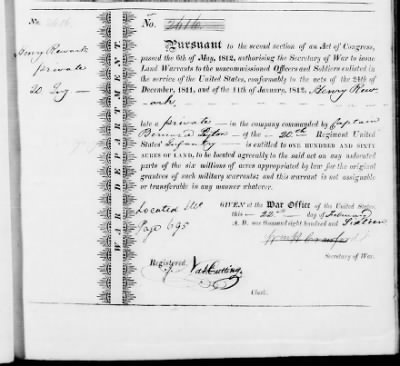 No. 2616.
Henry Rowark
private
20 Reg
WAR DEPARTMENT.
No. 2616.
Pursuant to the second section of an Act of Congress,
passed the 6th of May, 1812, authorising the Secretary of War to issue
Land Warrants to the noncommissioned Officers and Soldiers enlisted in
the service of the United States, conformably to the acts of the 24th of
December, 1811, and of the 11th of January, 1812, Henry Row-
ark
late a private in the company commanded by Captain
of the 20th Regiment United
States' Infantry is entitled to ONE HUNDRED AND SIXTY
ACRES OF LAND, to be located agreeably to the said act on any unlocated
parts of the six millions of acres appropriated by law for the original
grantees of such military warrants; and this warrant is not assignable
or transferable in any manner whatever.
Located
Page 695
GIVEN at the War Office of the United States,
this 22nd day of February
A. D. one thousand eight hundred and Sixteen
Wm H Crawford
Secretary of War.
Registered.
Nat Cutting
Clerk.